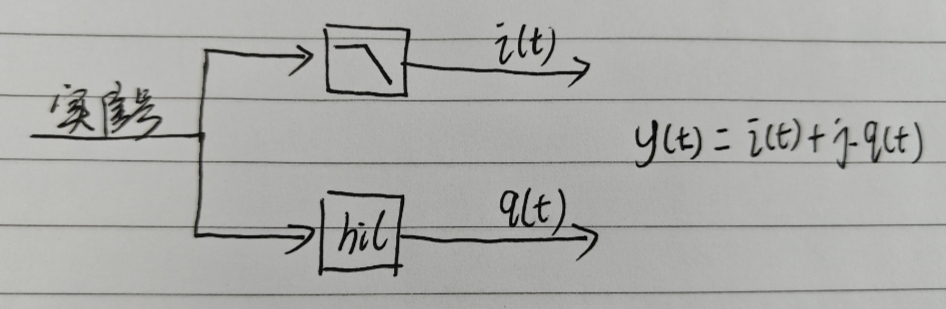 i(t)
实信号
y(t) = i(t) + j·q(t)
hil
q(t)